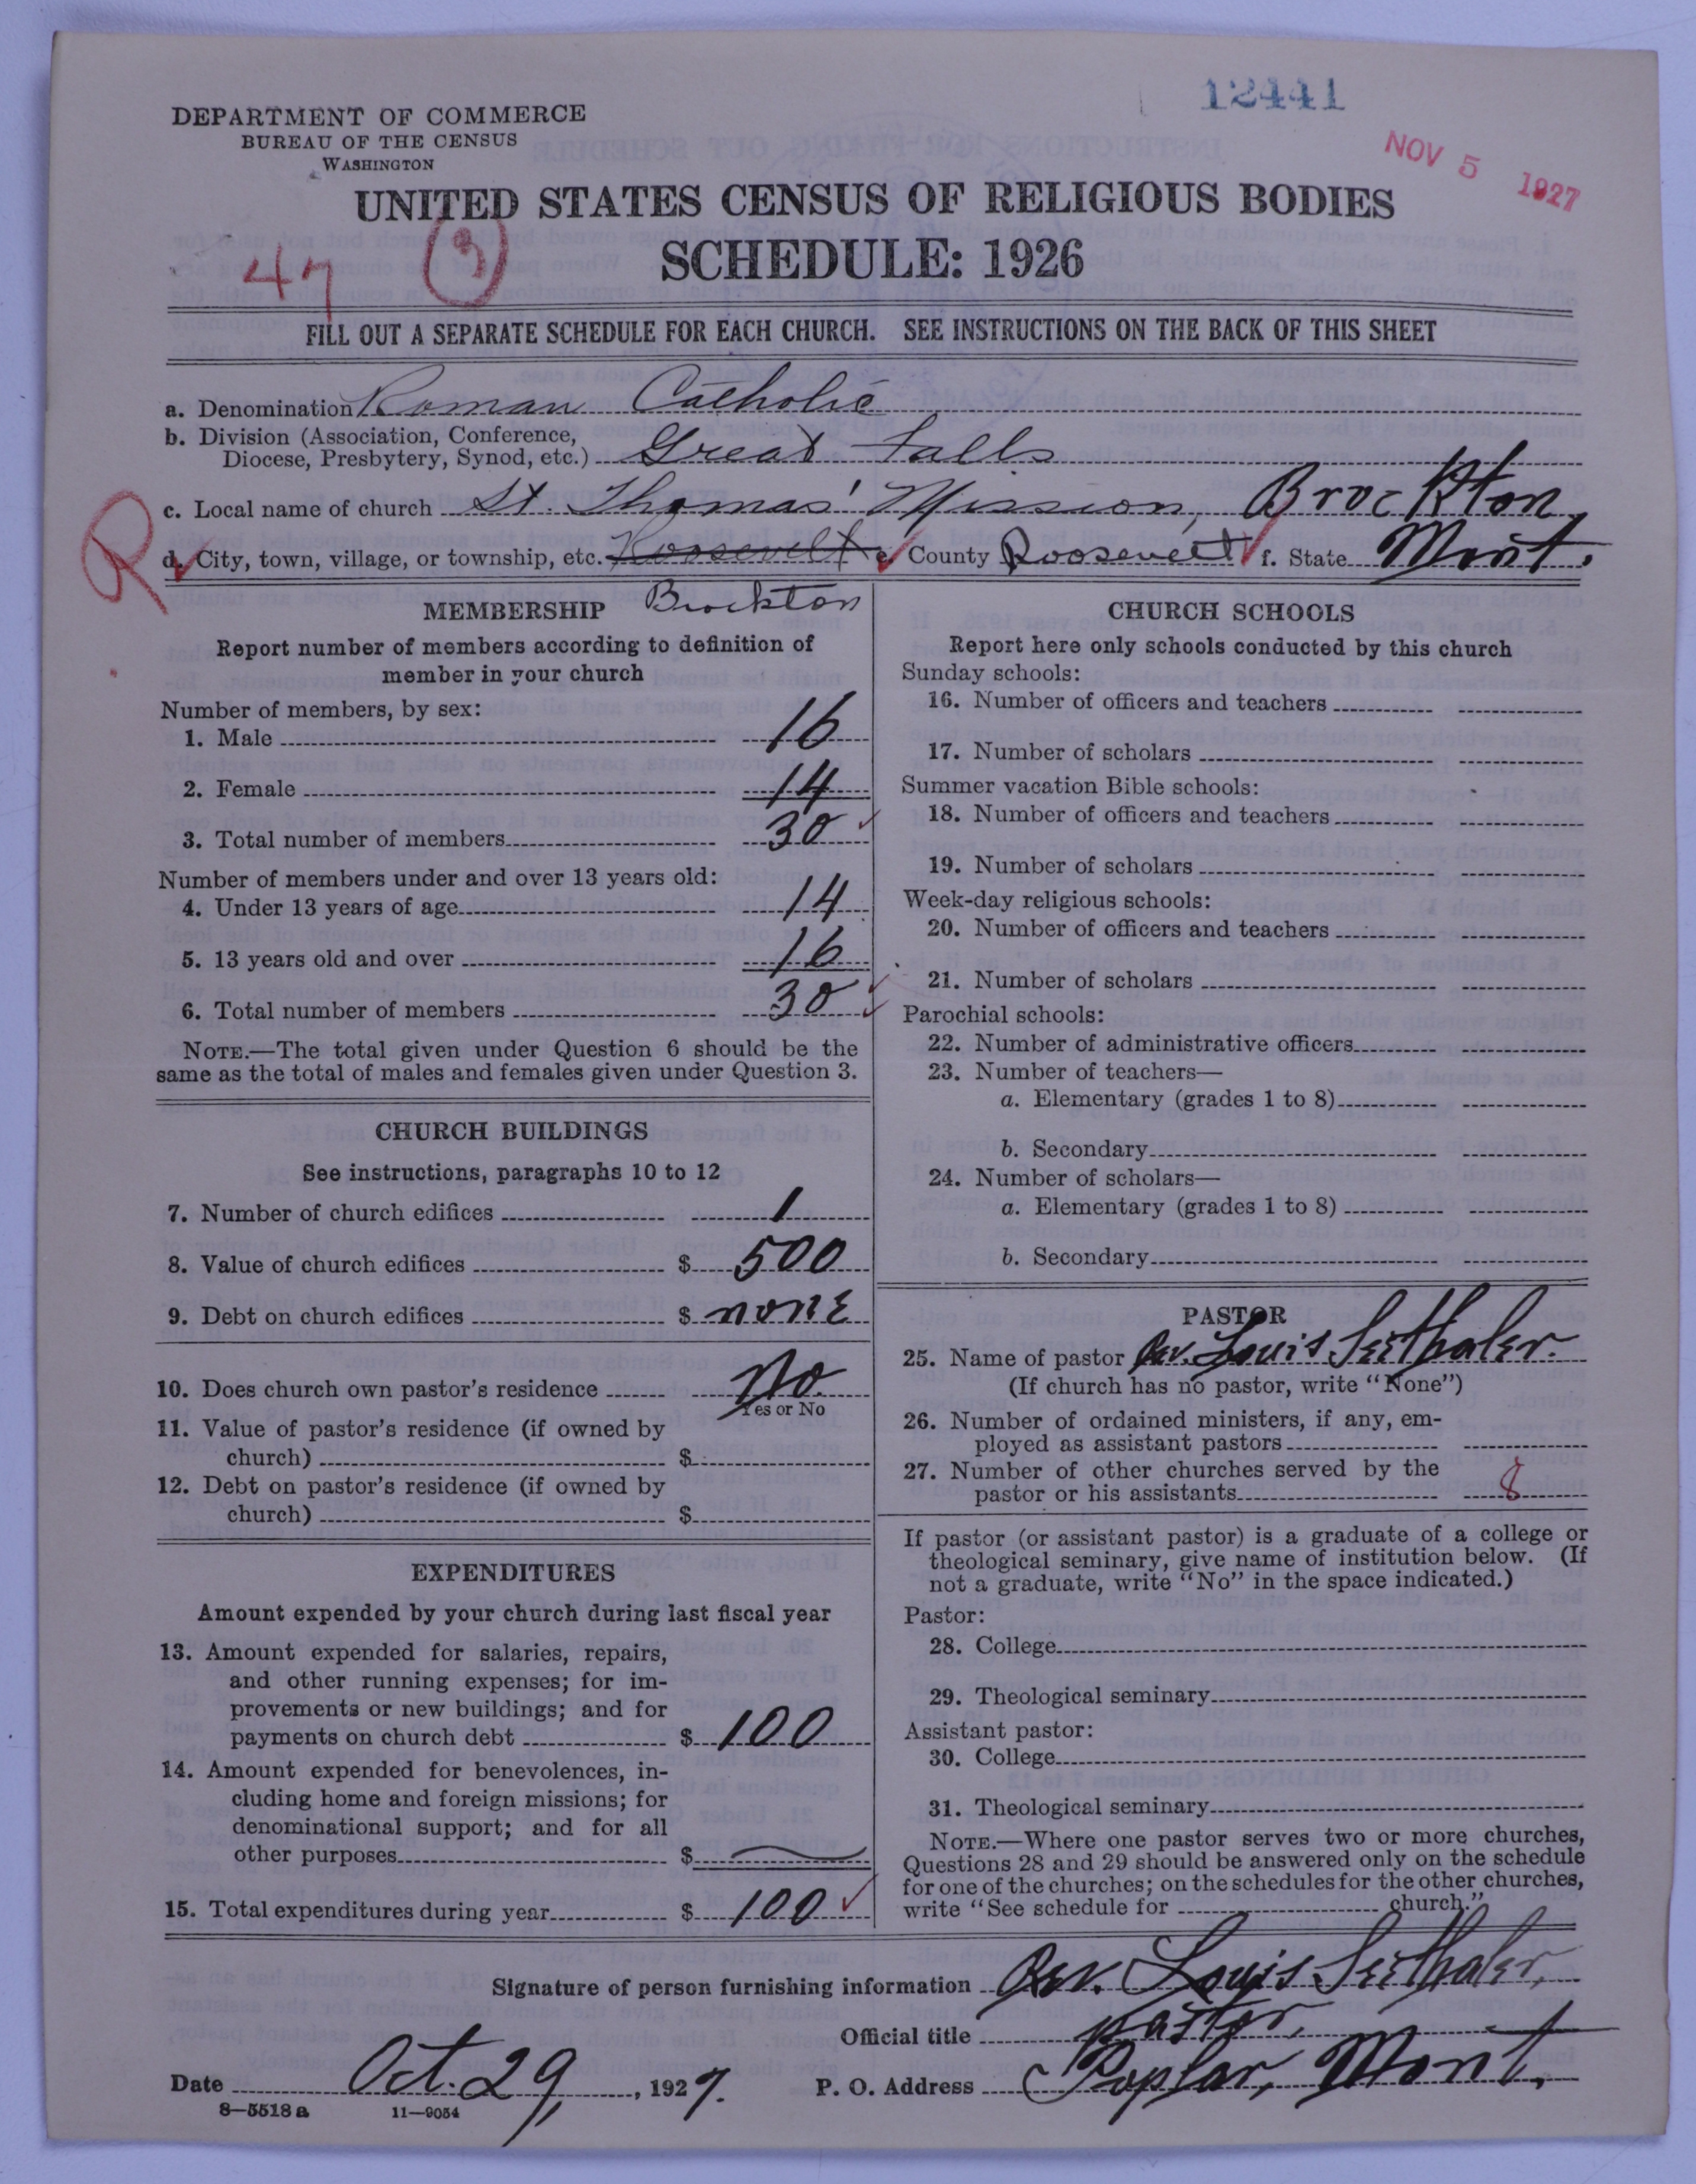 12441
DEPARTMENT OF COMMERCE
BUREAU OF THE CENSUS
WASHINGTON
NOV 5 1927
UNITED STATES CENSUS OF RELIGIOUS BODIES
SCHEDULE: 1926
47
FILL OUT A SEPARATE SCHEDULE FOR EACH CHURCH. SEE INSTRUCTIONS ON THE BACK OF THIS SHEET
a. Denomination Roman Catholic
b. Division (Association, Conference,
Diocese, Presbytery, Synod, etc.) Great Falls
R
c. Local name of church St. Thomas' Mission, Brockton
d. City, town, village, or township, etc. Roosevelt e. County Roosevelt f. State Mont.
Brockton
MEMBERSHIP
Report number of members according to definition of
member in your church
Number of members, by sex:
1. Male 16
2. Female 14
3. Total number of members 30
Number of members under and over 13 years old:
4. Under 13 years of age 14
5. 13 years old and over 16
6. Total number of members 30
NOTE.—The total given under Question 6 should be the
same as the total of males and females given under Question 3.
CHURCH BUILDINGS
See instructions, paragraphs 10 to 12
7. Number of church edifices 1
8. Value of church edifices $ 500
9. Debt on church edifices $ none
10. Does church own pastor's residence No.
Yes or No
11. Value of pastor's residence (if owned by
church) $
12. Debt on pastor's residence (if owned by
church) $
EXPENDITURES
Amount expended by your church during last fiscal year
13. Amount expended for salaries, repairs,
and other running expenses; for im-
provements or new buildings; and for
payments on church debt $ 100
14. Amount expended for benevolences, in-
cluding home and foreign missions; for
denominational support; and for all
other purposes $
15. Total expenditures during year $ 100
CHURCH SCHOOLS
Report here only schools conducted by this church
Sunday schools:
16. Number of officers and teachers
17. Number of scholars
Summer vacation Bible schools:
18. Number of officers and teachers
19. Number of scholars
Week-day religious schools:
20. Number of officers and teachers
21. Number of scholars
Parochial schools:
22. Number of administrative officers
23. Number of teachers—
a. Elementary (grades 1 to 8)
b. Secondary
24. Number of scholars—
a. Elementary (grades 1 to 8)
b. Secondary
PASTOR
25. Name of pastor Rev. Louis Seethaler.
(If church has no pastor, write "None")
26. Number of ordained ministers, if any, em-
ployed as assistant pastors
27. Number of other churches served by the
pastor or his assistants 8
If pastor (or assistant pastor) is a graduate of a college or
theological seminary, give name of institution below. (If
not a graduate, write "No" in the space indicated.)
Pastor:
28. College
29. Theological seminary
Assistant pastor:
30. College
31. Theological seminary
NOTE.—Where one pastor serves two or more churches,
Questions 28 and 29 should be answered only on the schedule
for one of the churches; on the schedules for the other churches,
write "See schedule for church."
Signature of person furnishing information Rev. Louis Seethaler,
Official title Pastor,
Date Oct. 29, 1927. P. O. Address Poplar, Mont.
8—5518 a 11—9054